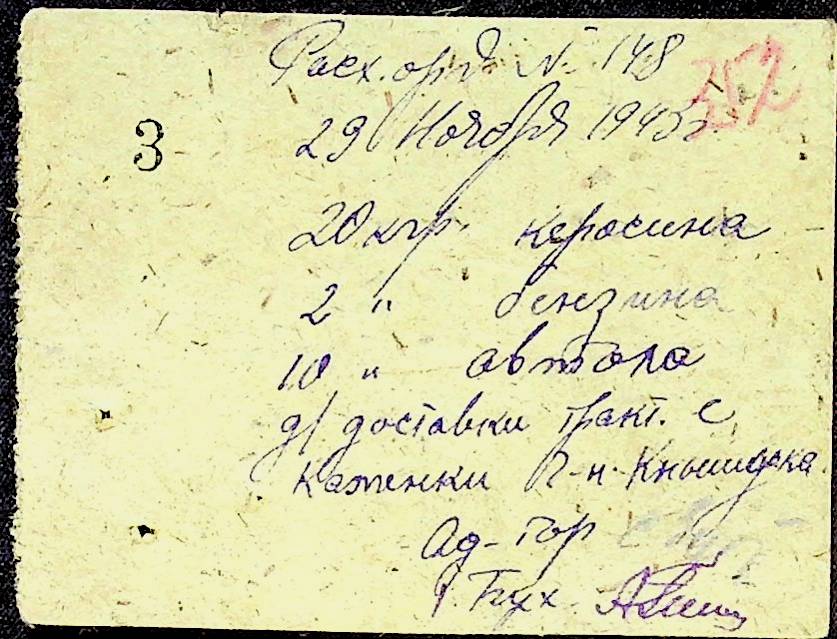 252
Расх. орд № 148
29 Ноября 1945г
3
20 кгр. керосина
2 " бензина
10 " автола
д/ доставки тракт. с
Каменки
Бух.